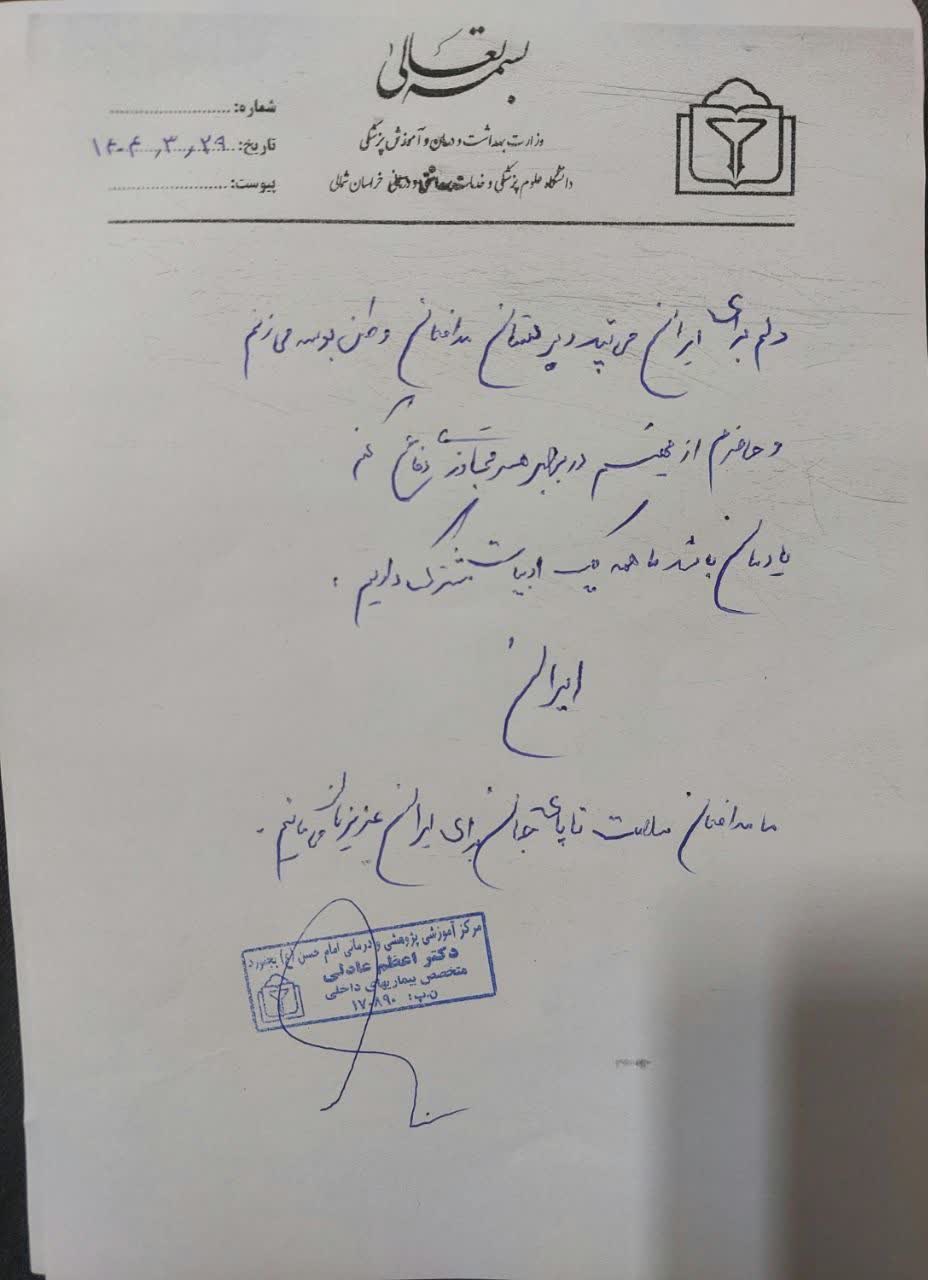 بسمه تعالی
وزارت بهداشت و درمان و آموزش پزشکی
دانشگاه علوم پزشکی و خدمات بهداشتی و درمانی خراسان شمالی
شماره:
تاریخ: ۱۴۰۴,۳,۲۹
پیوست:
دلم برای ایران می تپد و بر دستان مدافعان وطن بوسه می زنم
و حاضرم از میهنم در برابر هر متجاوزی دفاع کنم
یادمان باشد ما همه یک ادبیات مشترک داریم .
ایران
ما مدافعان سلامت تا پای جان برای ایران عزیزمان می مانیم .
مرکز آموزشی پژوهشی و درمانی امام حسن (ع) بجنورد
دکتر اعظم عادلی
متخصص بیماریهای داخلی
ن.پ: ۱۷۰۸۹۰